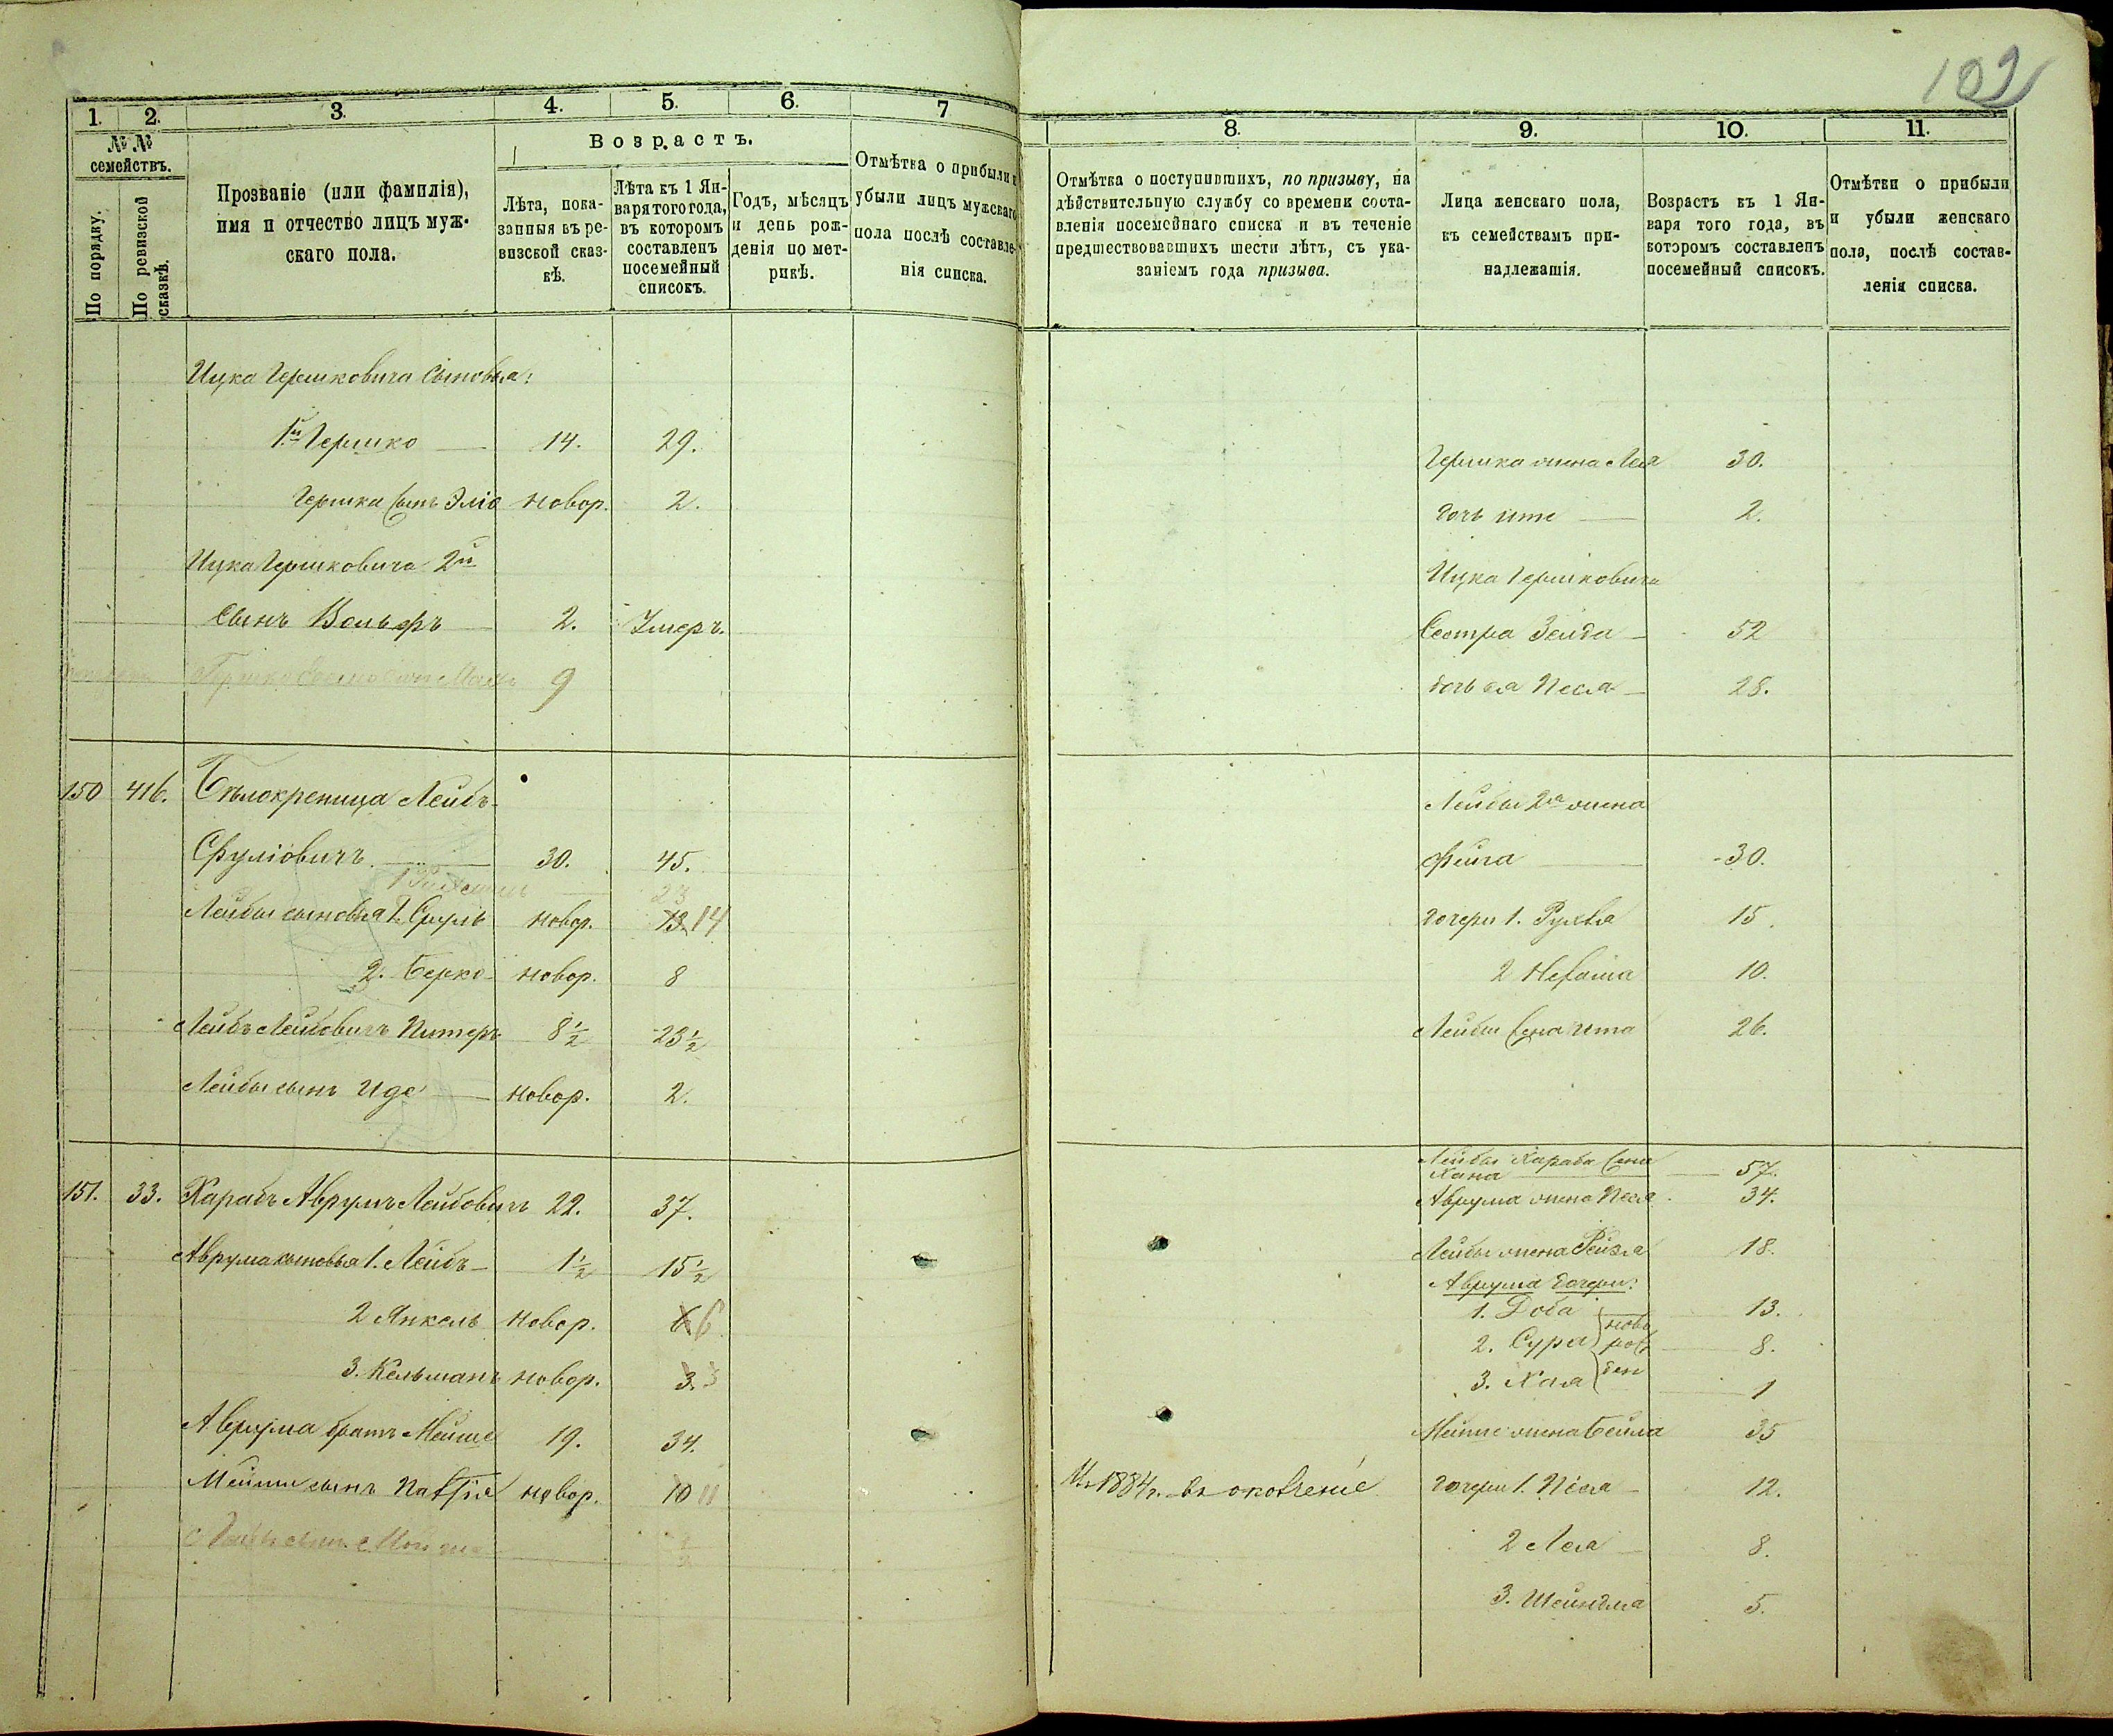 102
1. 2. 3. 4. 5. 6. 7
№ №
семействъ.
По порядку.
По ревизской сказкѣ.
Прозваніе (или фамилія),
имя и отчество лицъ муж-
скаго пола.
Возрастъ.
Лѣта, пока-
занныя въ ре-
визской сказ-
кѣ.
Лѣта къ 1 Ян-
варя того года,
въ которомъ
составленъ
посемейный
списокъ.
Годъ, мѣсяцъ
и день рож-
денія по мет-
рикѣ.
Отмѣтка о прибыли и
убыли лицъ мужскаго
пола послѣ составле-
нія списка.
Ицка Гершковича сыновья:
1й Гершко 14. 29.
Гершка сынъ Эліо новор. 2.
Ицка Гершковича 2й
сынъ Вольфъ 2. Умеръ.
9
150 416. Бѣлокреница Лейбъ
Сруліовичъ 30. 45.
23
Лейбы сыновья 1. Сруль новор. 13 14
2. Берко новор. 8
Лейбъ Лейбовичъ Питеръ 8 1/2 23 1/2
Лейбы сынъ Иде новор. 2.
151. 33. Карабъ Аврумъ Лейбовичъ 22. 37.
Аврума сыновья 1. Лейбъ 1 1/2 15 1/2
2 Янкель новор. 6 6
3. Кельманъ новор. 3. 3
Аврума братъ Мейше 19. 34.
Мейши сынъ новор. 10 11
8. 9. 10. 11.
Отмѣтка о поступившихъ, по призыву, на
дѣйствительную службу со времени соста-
вленія посемейнаго списка и въ теченіе
предшествовавшихъ шести лѣтъ, съ ука-
заніемъ года призыва.
Лица женскаго пола,
къ семействамъ при-
надлежащія.
Возрастъ къ 1 Ян-
варя того года, въ
которомъ составленъ
посемейный списокъ.
Отмѣтки о прибыли
и убыли женскаго
пола, послѣ состав-
ленія списка.
Гершка жена Лея 30.
дочь Ите 2.
Ицка Гершковича
Сестра Зельда 52
дочь ея Песя 28.
Лейбы 2я жена
Фейга 30.
дочери 1. Рухля 15.
2 10.
Лейбы жена Ита 26.
Лейбы Караба жена
Хана 57.
Аврума жена Песя 34.
Лейбы жена Рейзя 18.
Аврума дочери:
1. Доба 13.
2. Сура 8.
3. Хая 1
Мейше жена Бейла 35
1884 г. дочери 1. Песя 12.
2 Лея 8.
3. Шейндля 5.